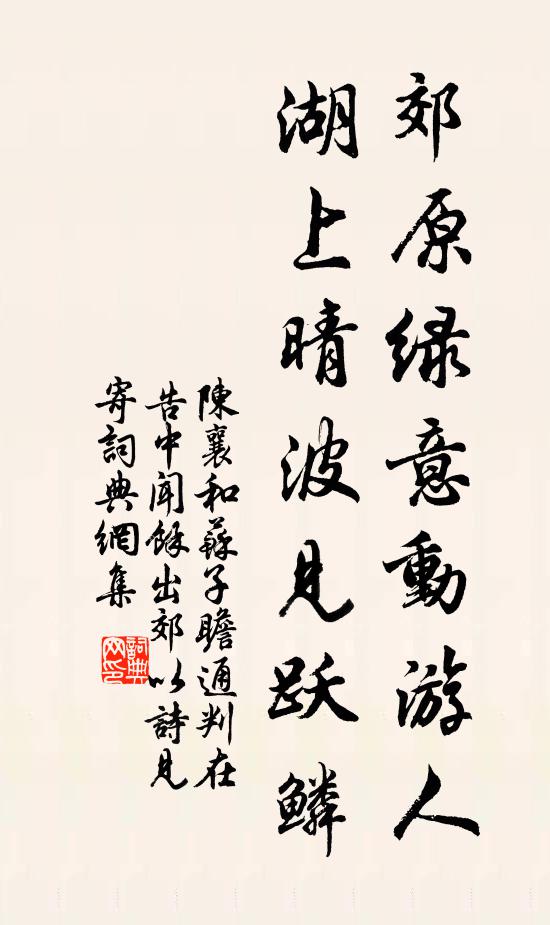 郊原緑意動游人
湖上晴波見跃鱗
陳襄和蘇子瞻通判在
告中聞餘出郊以詩見
寄詞典網集
詞典
网印